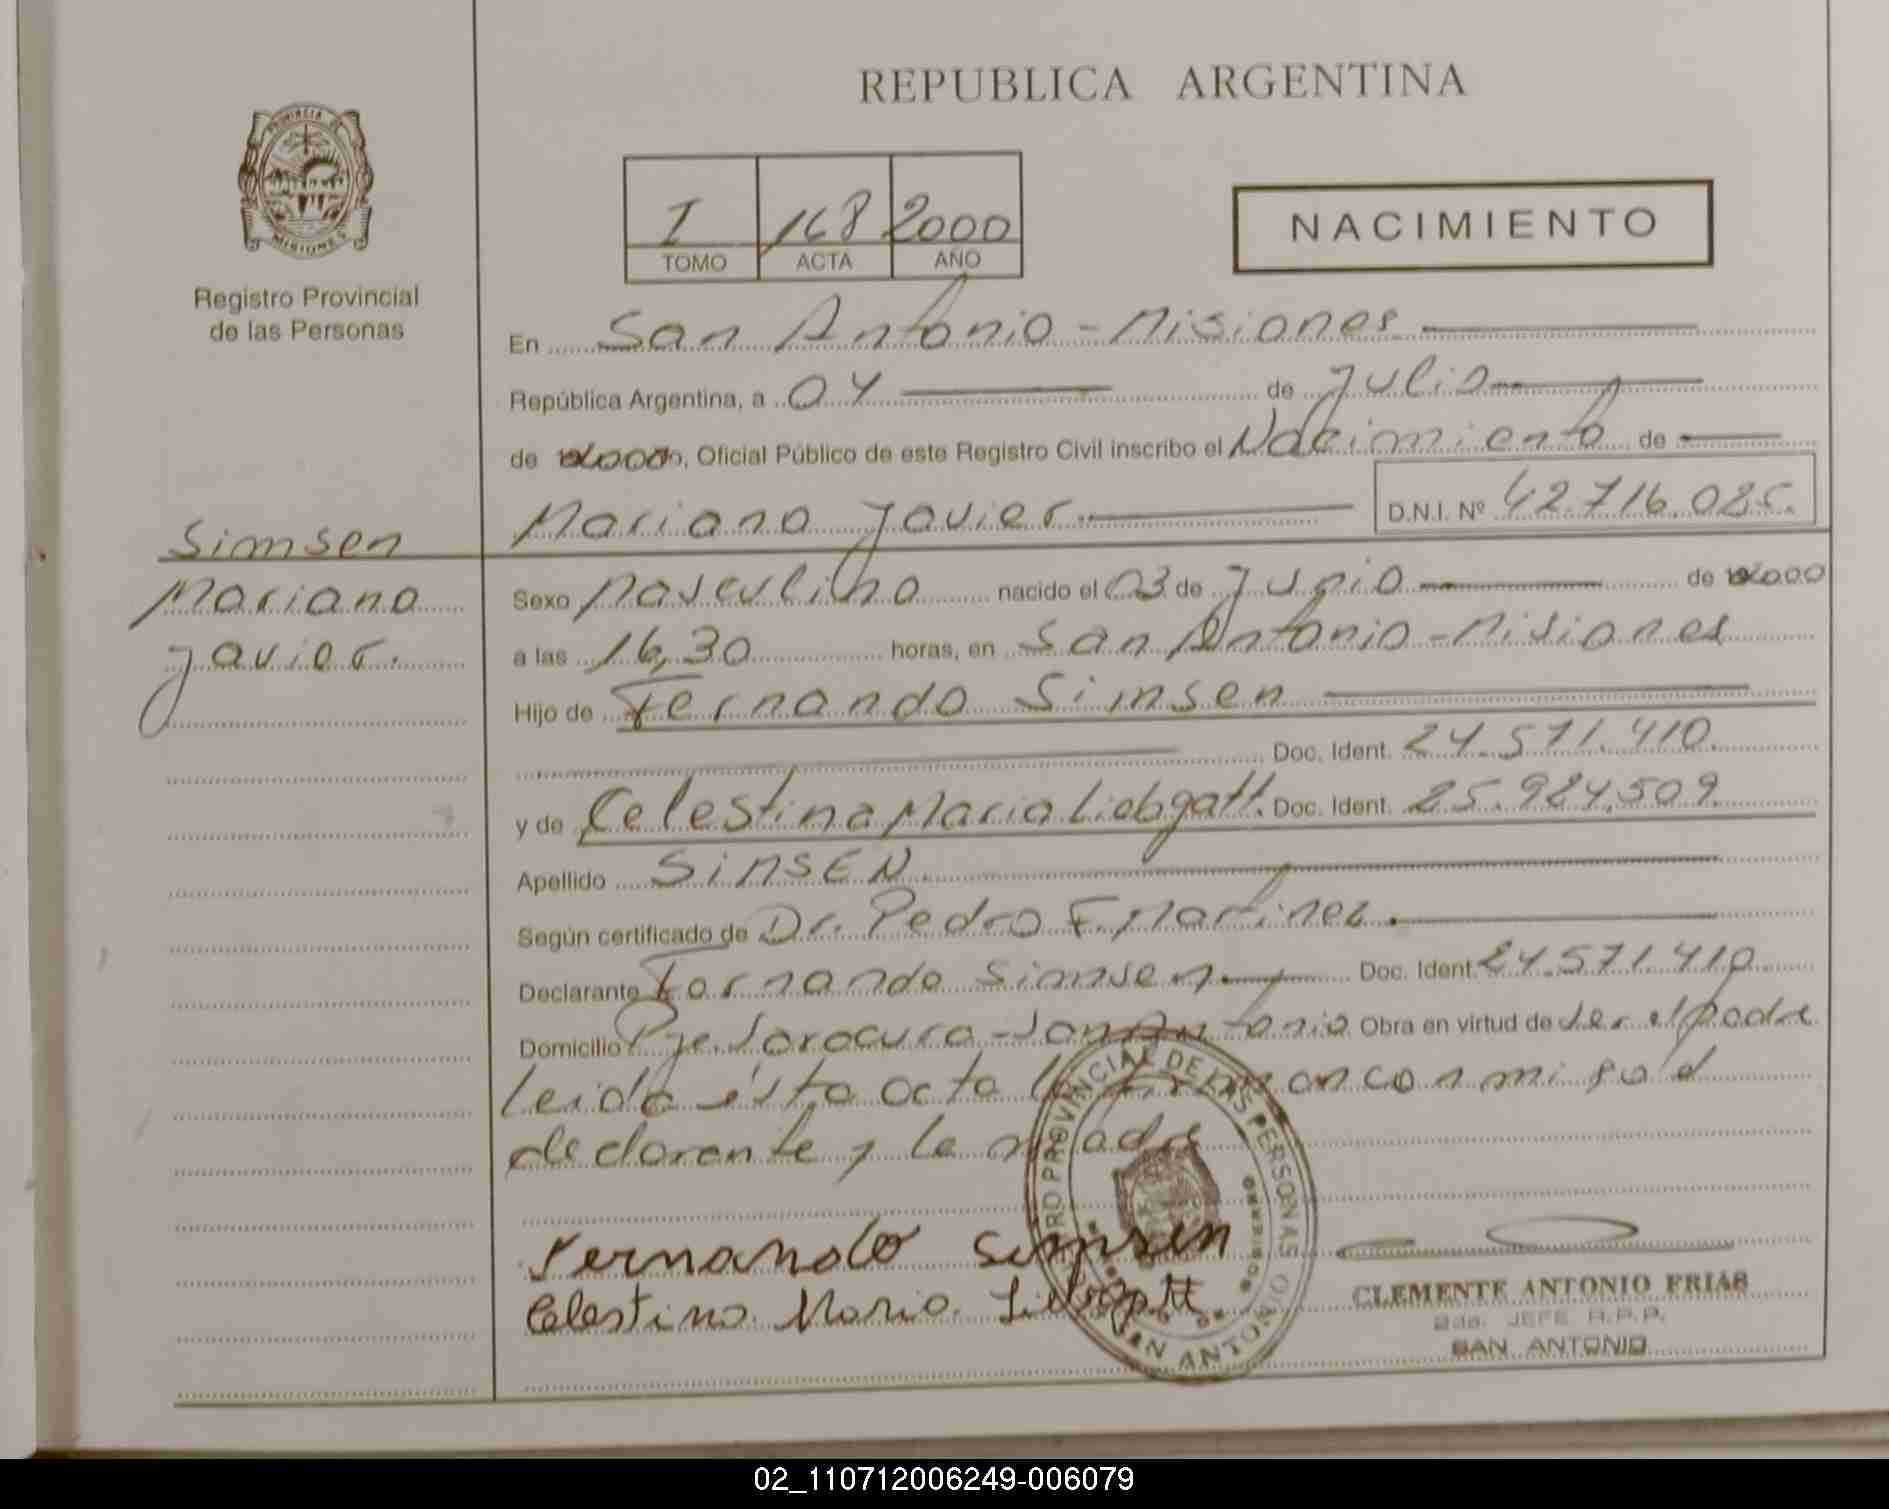 REPUBLICA ARGENTINA
PROVINCIA DE
MISIONES
Registro Provincial
de las Personas
I 168 2000
TOMO ACTA AÑO
NACIMIENTO
En San Antonio - Misiones
República Argentina, a 04 de Julio
de 2000, Oficial Público de este Registro Civil inscribo el Nacimiento de
Mariano Javier D.N.I. Nº 42.716.085.
Simsen
Mariano
Javier.
Sexo Masculino nacido el 03 de Junio de 2000
a las 16,30 horas, en San Antonio - Misiones
Hijo de Fernando Simsen
Doc. Ident. 24.571.410.
y de Celestina Maria Liebgott. Doc. Ident. 25.984.509.
Apellido SiMSEN
Según certificado de Dr. Pedro F. Martinez.
Declarante Fernando Simsen. Doc. Ident. 24.571.410
Domicilio Pje. Saracura - San Antonio Obra en virtud de ser el padre
Leida ésta acta la firman conmigo el
declarante y la madre
Fernando Simsen
Celestina Maria Liebgott
REGISTRO PROVINCIAL DE LAS PERSONAS
SAN ANTONIO
CLEMENTE ANTONIO FRIAS
2do. JEFE R.P.P.
SAN ANTONIO
02_110712006249-006079